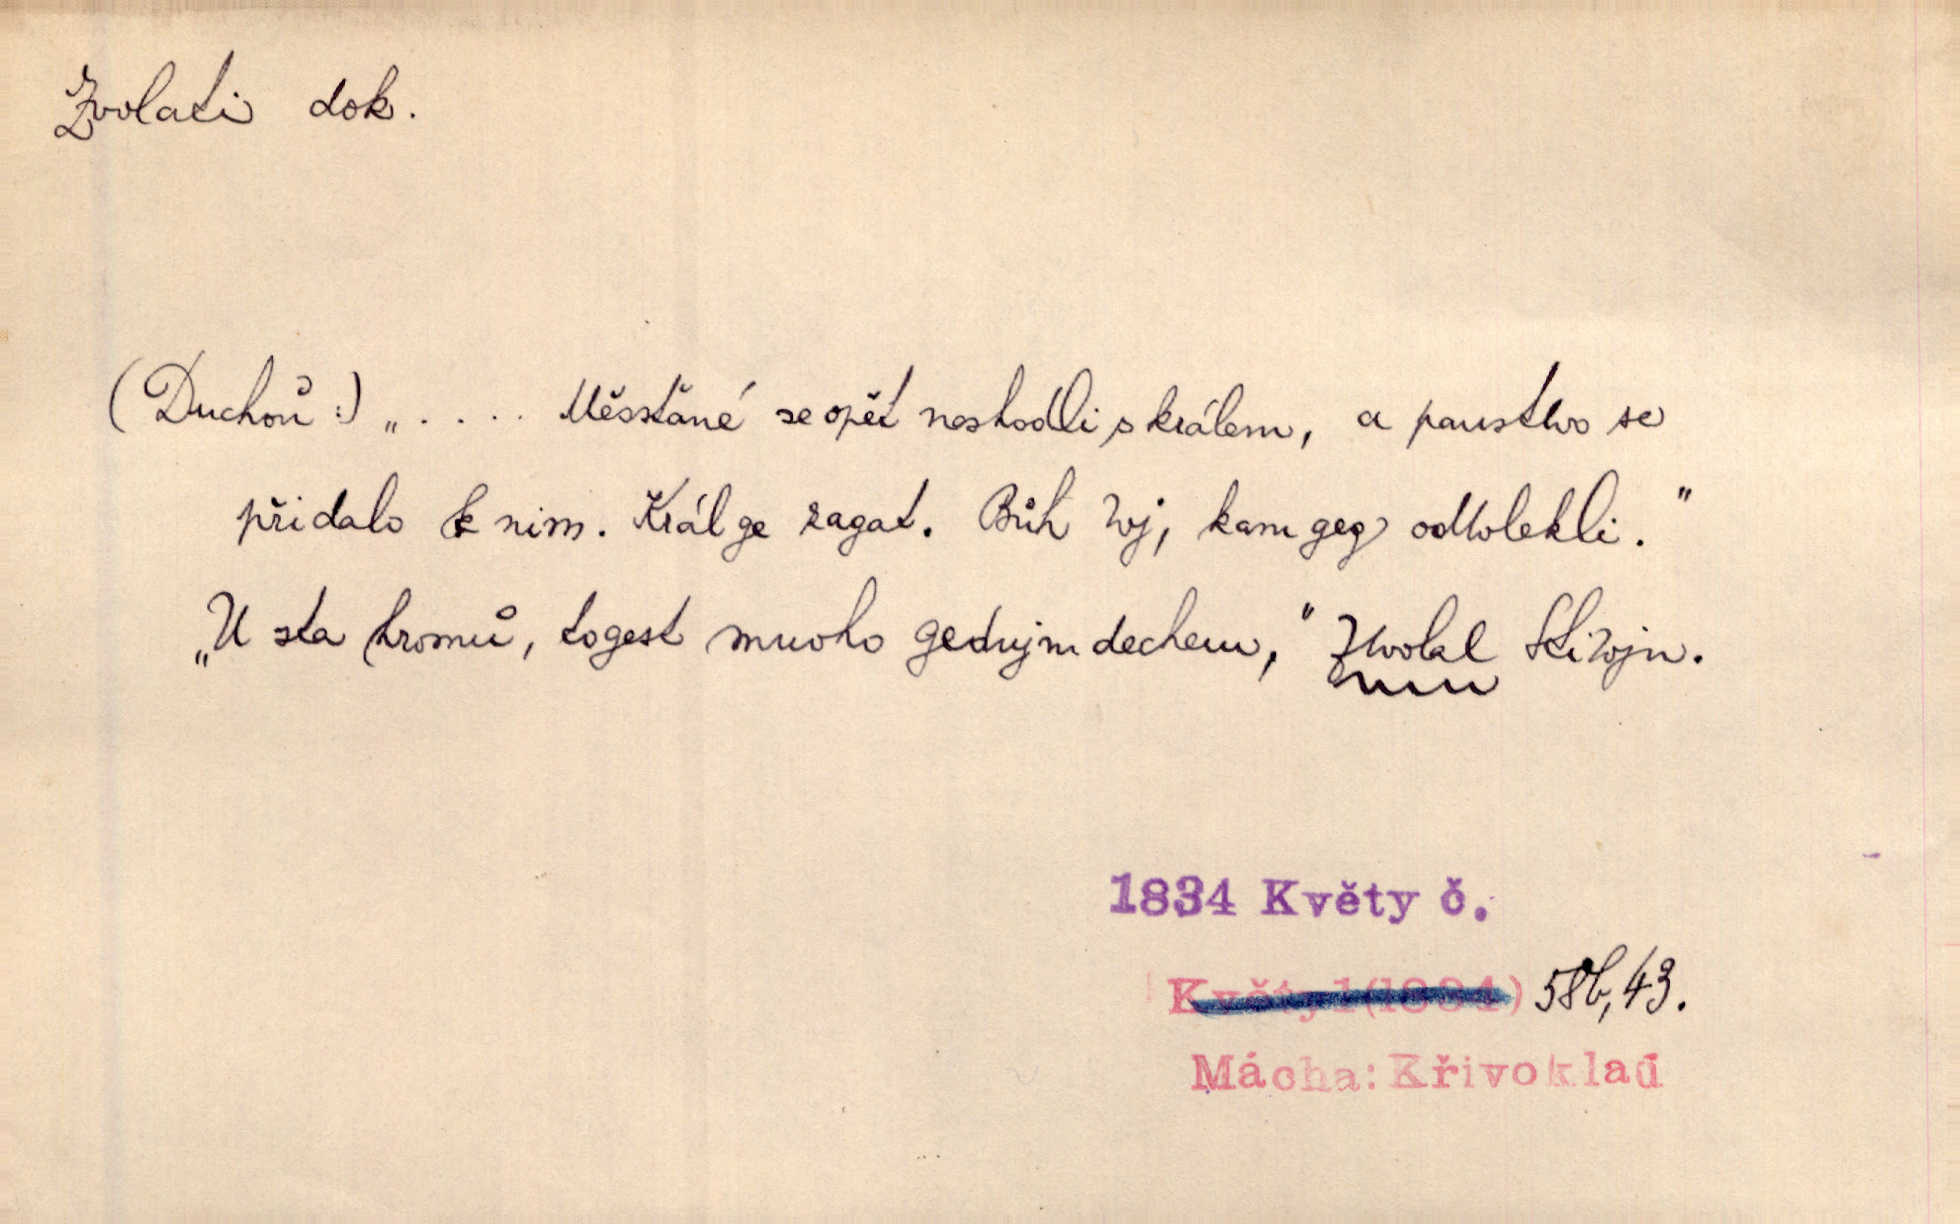 Zvolati dok.
(Duchoň:) „.... Měsstané se opět neshodli s králem, a panstwo se
přidalo k nim. Král ge zagat. Bůh wj, kam geg odwlekli."
„U sta hromů, togest mnoho gednjm dechem," Zwolal Stiwjn.
1834 Květy č.
Květy 1(1834) 58b, 43.
Mácha: Křivoklad